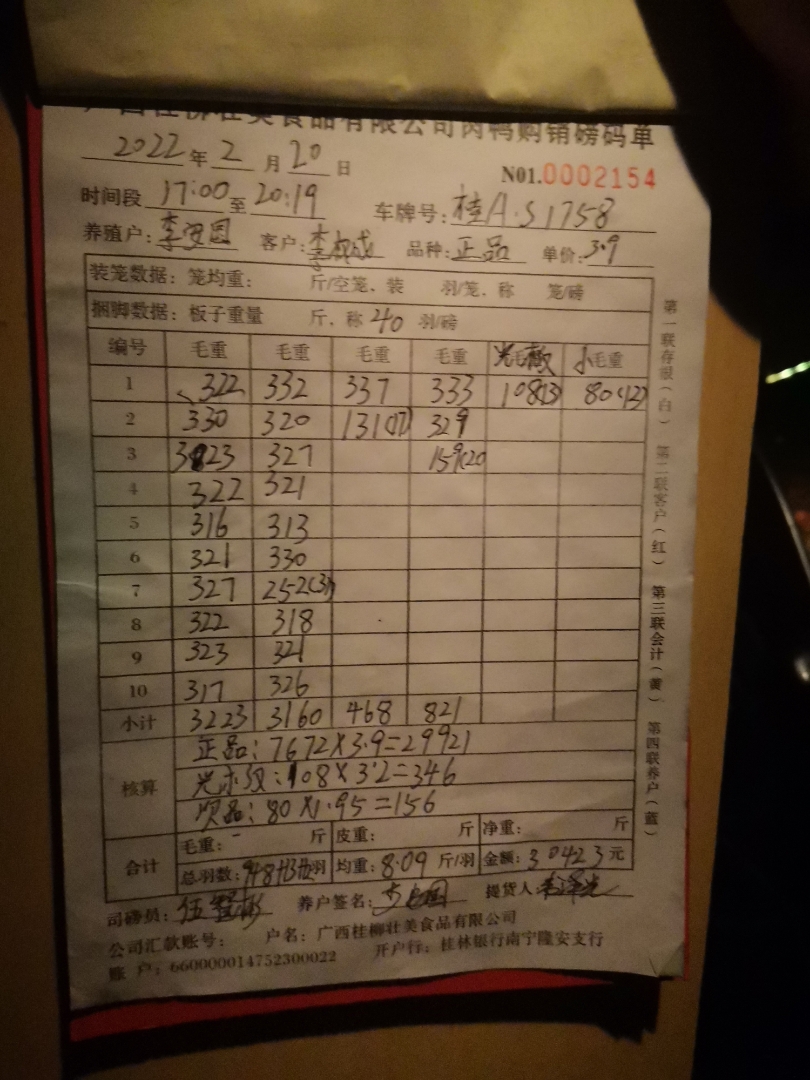 广西桂柳壮美食品有限公司肉鸭购销磅码单
2022年2月20日 N01.0002154
时间段 17:00至20:19 车牌号:桂A·S1758
养殖户: 客户: 品种:正品 单价:3.9
装笼数据: 笼均重: 斤/空笼、装 羽/笼、称 笼/磅
捆脚数据: 板子重量 斤、称40羽/磅
编号 毛重 毛重 毛重 毛重 小毛重
1 322 332 337 333 108(13) 80(12)
2 330 320 131(17) 329
3 323 327 159(20
4 322 321
5 316 313
6 321 330
7 327 252(31)
8 322 318
9 323 321
10 317 326
小计 3223 3160 468 821
核算 正品:7672×3.9=29921
:108×3.2=346
次品:80×1.95=156
合计 毛重: 斤 皮重: 斤 净重: 斤
总羽数: 羽 均重:8.09斤/羽 金额:30423元
司磅员: 养户签名: 提货人
公司汇款账号: 户名:广西桂柳壮美食品有限公司
账户:660000014752300022 开户行:桂林银行南宁隆安支行
第一联存根(白) 第二联客户(红) 第三联会计(黄) 第四联养户(蓝)